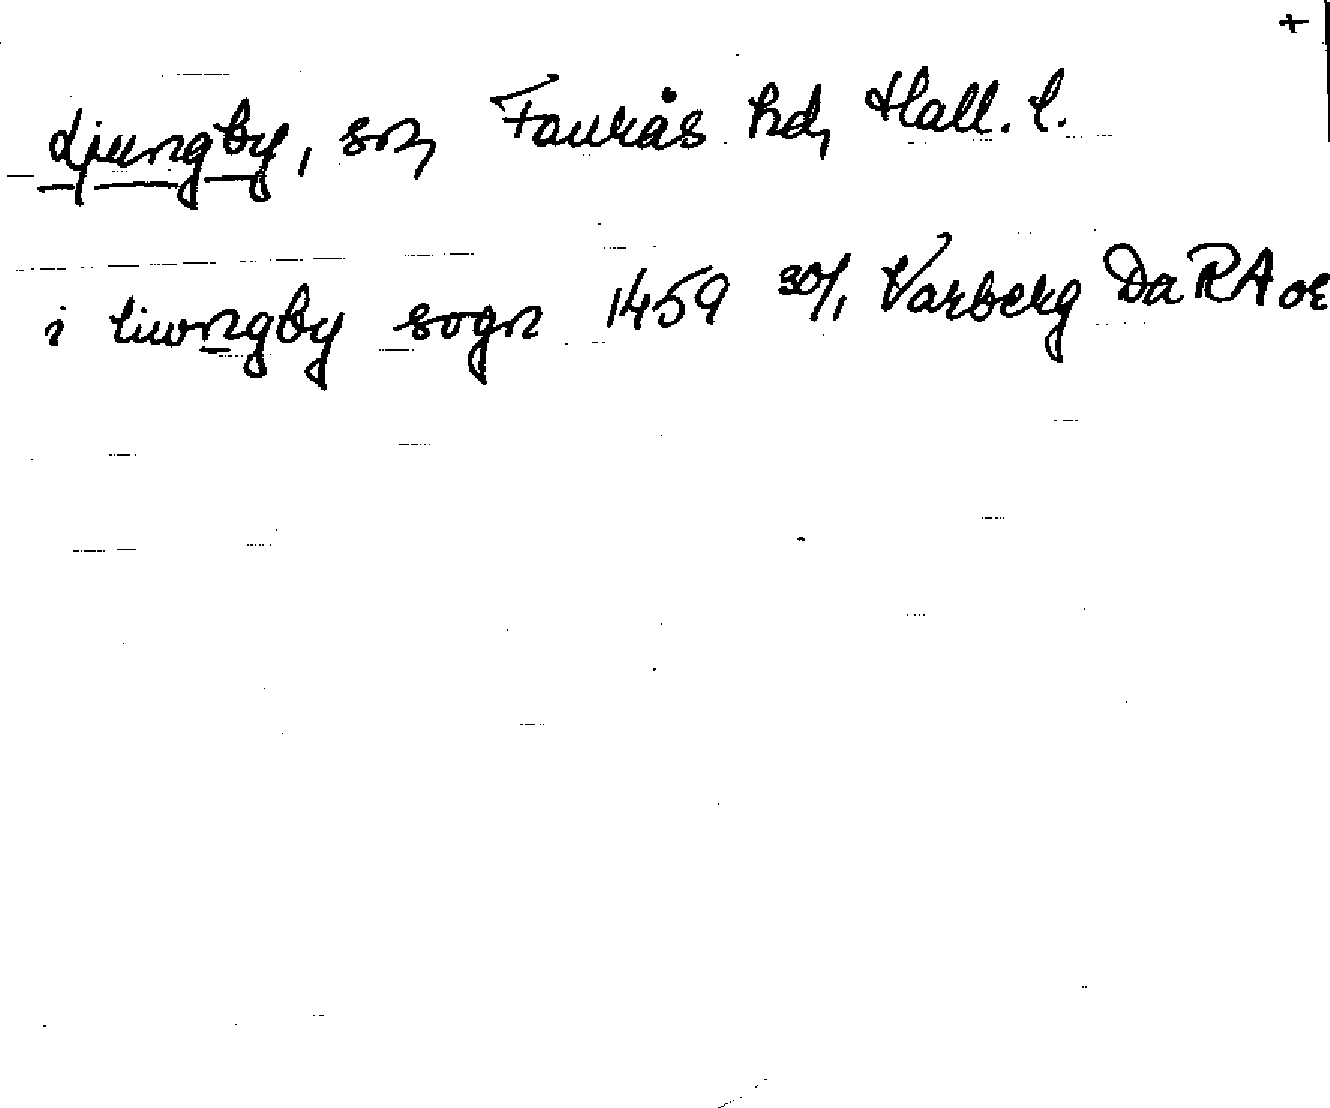 +
Ljungby, sn, Faurås hd, Hall. l.
i liwngby sogn 1459 30/1 Varberg Da RA or